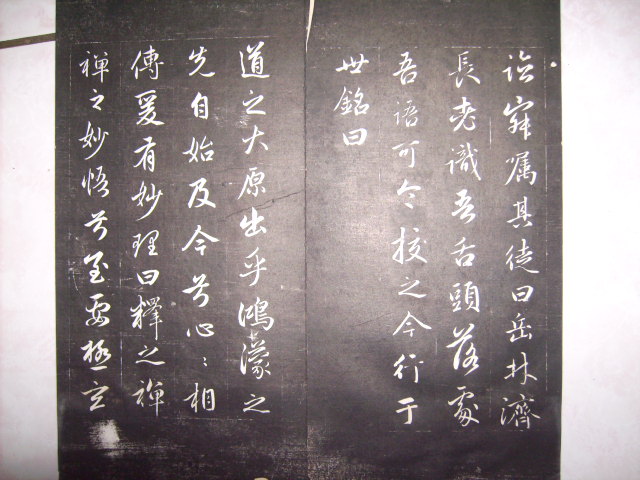 囑其徒曰岳林濟
長老識吾舌頭落處
吾語可令挍之今行于
世銘曰
道之大原出乎鴻濛之
先自始及今兮心〻相
傳爰有妙理曰釋之禪
禪之妙悟兮至要極玄